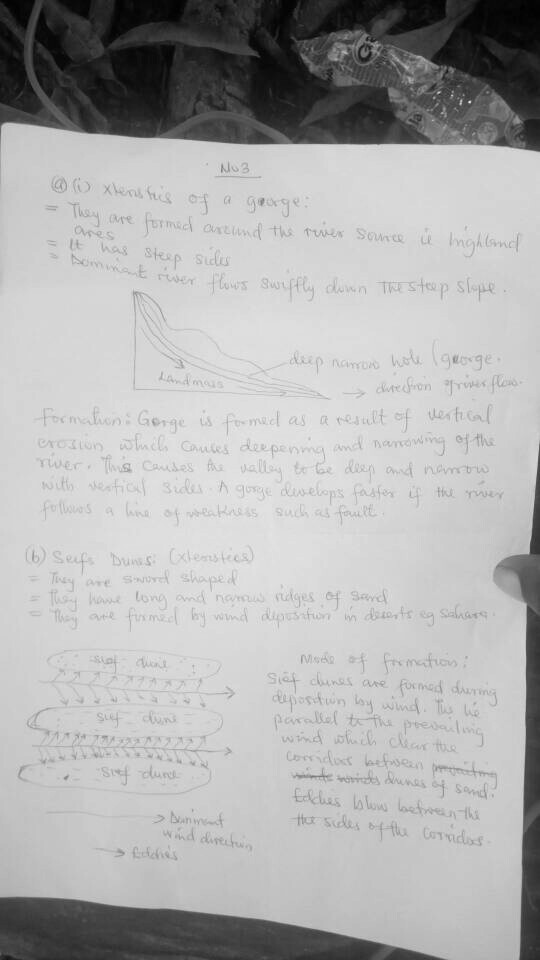 No 3
(a) (i) Xteristics of a george:
= They are formed around the river source ie highland
ares
= It has steep sides
= Dominant river flows swiftly down The steep slope.
deep narrow hole (george.
Landmass
direction of river flow.
Formation: Gorge is formed as a result of vertical
erosion which causes deepening and narrowing of the
river. This causes the valley to be deep and narrow
with vertical sides. A gorge develops faster if the river
follows a line of weakness such as fault.
(b) Seifs Dunes: (Xteristics)
= They are sword shaped
= They have long and narrow ridges of sand
= They are formed by wind deposition in deserts eg Sahara.
sief dune
sief dune
sief dune
Dominant
wind direction
Eddies
Mode of formation:
Sief dunes are formed during
deposition by wind. The lie
parallel to the prevailing
wind which clear the
corridors between prevailing
winds winds dunes of sand.
Eddies blow between the
the sides of the corridors.